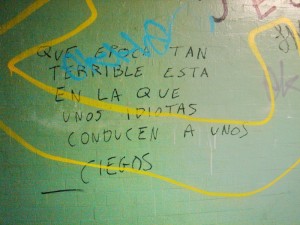 QUE EPOCA TAN
TERRIBLE ESTA
EN LA QUE
UNOS IDIOTAS
CONDUCEN A UNOS
CIEGOS